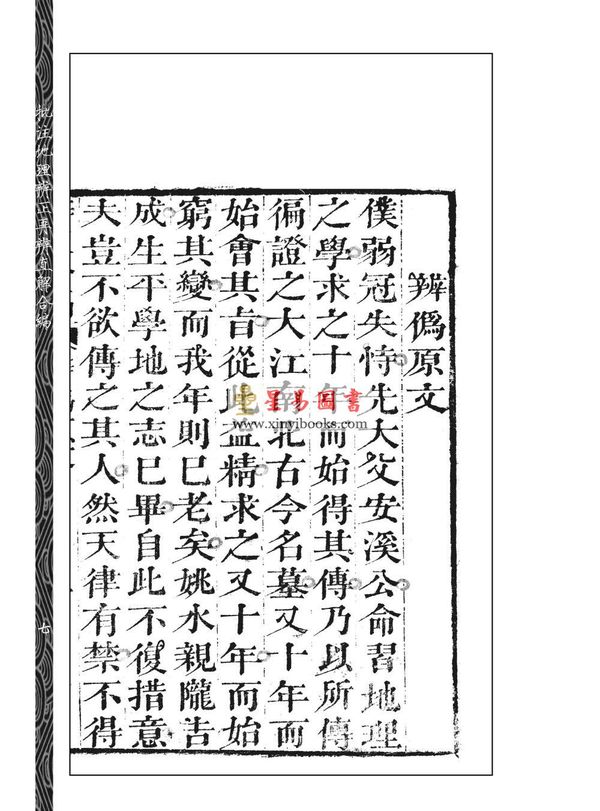 辨僞原文
僕弱冠失恃先大父安溪公命習地理
之學求之十年而始得其傳乃以所傳
徧證之大江南北古今名墓又十年而
始會其旨從此益精求之又十年而始
窮其變而我年則已老矣姚水親隴告
成生平學地之志已畢自此不復措意
夫豈不欲傳之其人然天律有禁不得
星易圖書
www.xinyibooks.com
批注地理辨正再辨直解合編
七